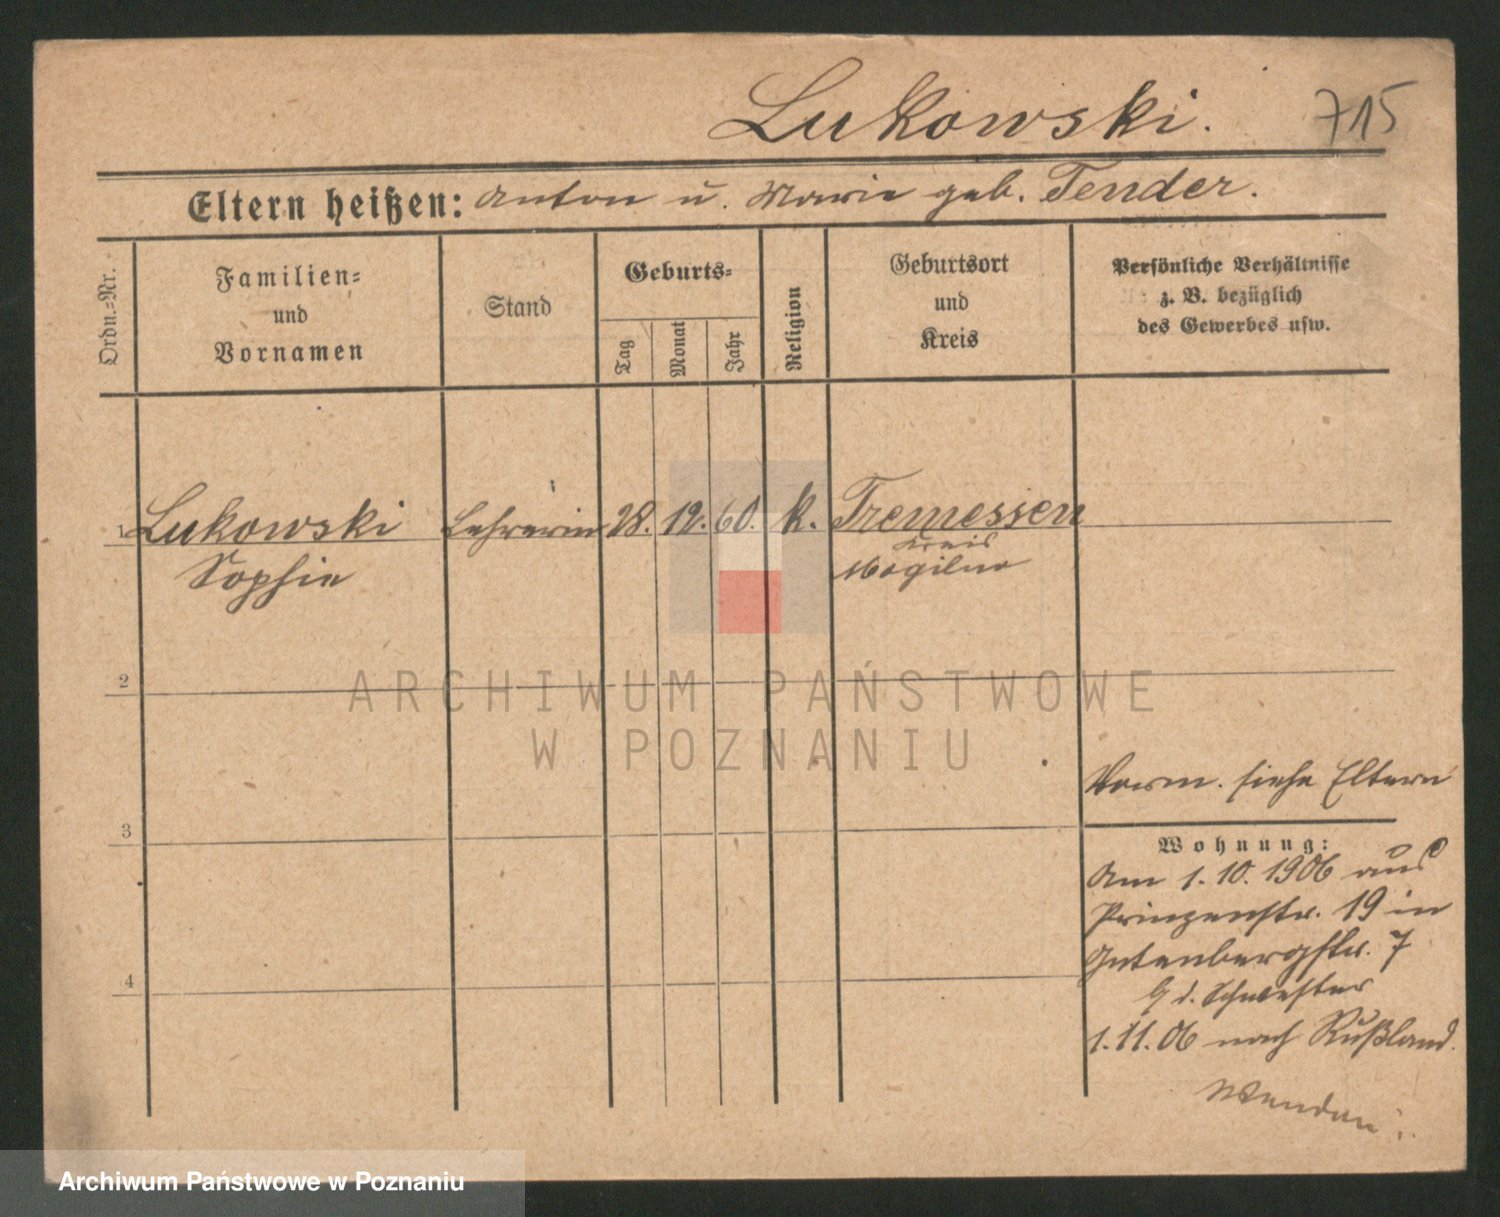 Lukowski.
715
Eltern heißen: Anton u. Marie geb. Tender.
Ordn.=Nr.
Familien=
und
Vornamen
Stand
Geburts=
Tag
Monat
Jahr
Religion
Geburtsort
und
Kreis
Persönliche Verhältnisse
z. B. bezüglich
des Gewerbes usw.
1 Lukowski Lehrerin 28. 12. 60. k. Tremessen
Sophie
Kreis
Mogilno
2
ARCHIWUM PAŃSTWOWE
W POZNANIU
Vorm. siehe Eltern
3
Wohnung:
Am 1.10.1906 aus
Prinzenstr. 19 in
Gutenbergstr. 7
4
b/ d. Schwester
1.11.06 nach Rußland.
Wenden!
Archiwum Państwowe w Poznaniu